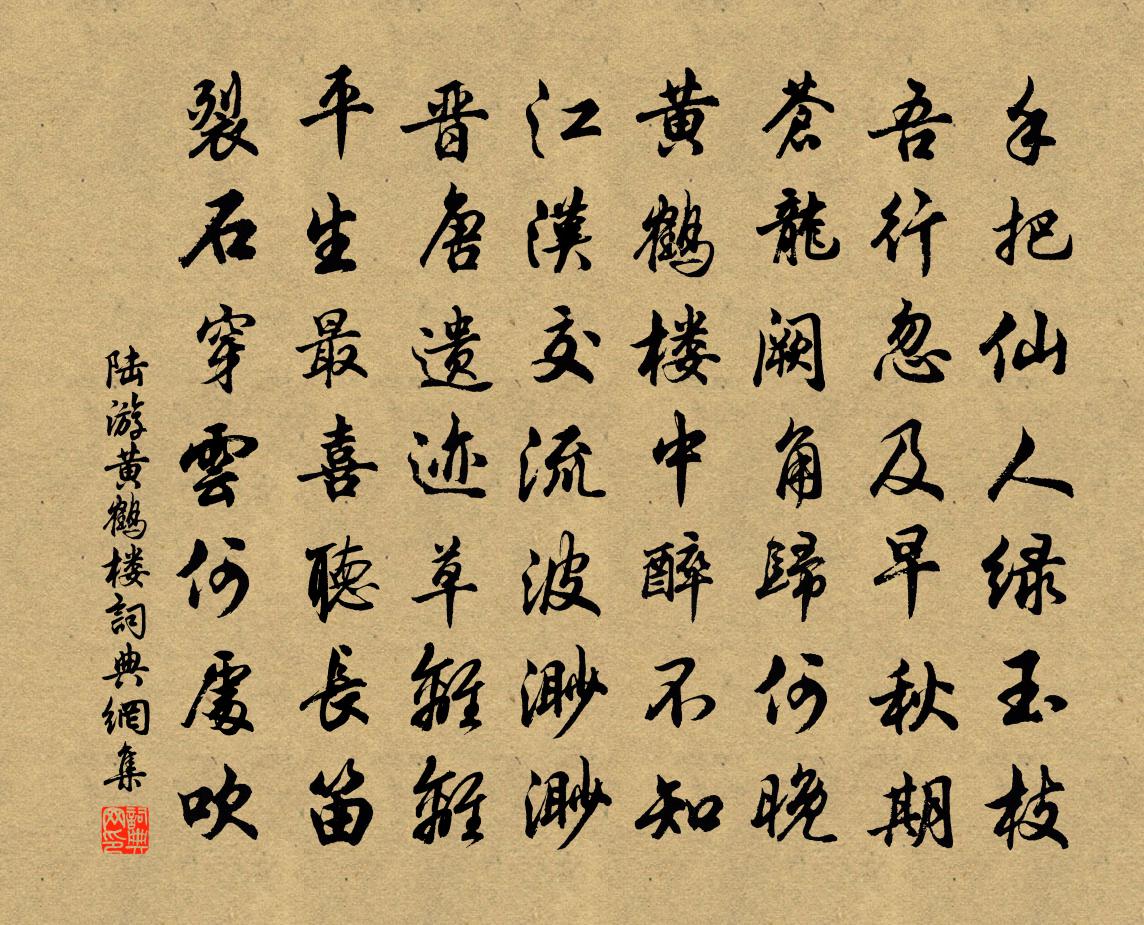 手把仙人绿玉枝
吾行忽及早秋期
蒼龍阙角歸何晚
黄鶴楼中醉不知
江漢交流波渺渺
晋唐遗迹草離離
平生最喜聴長笛
裂石穿雲何處吹
陆游黄鶴楼詞典網集
詞典
网印